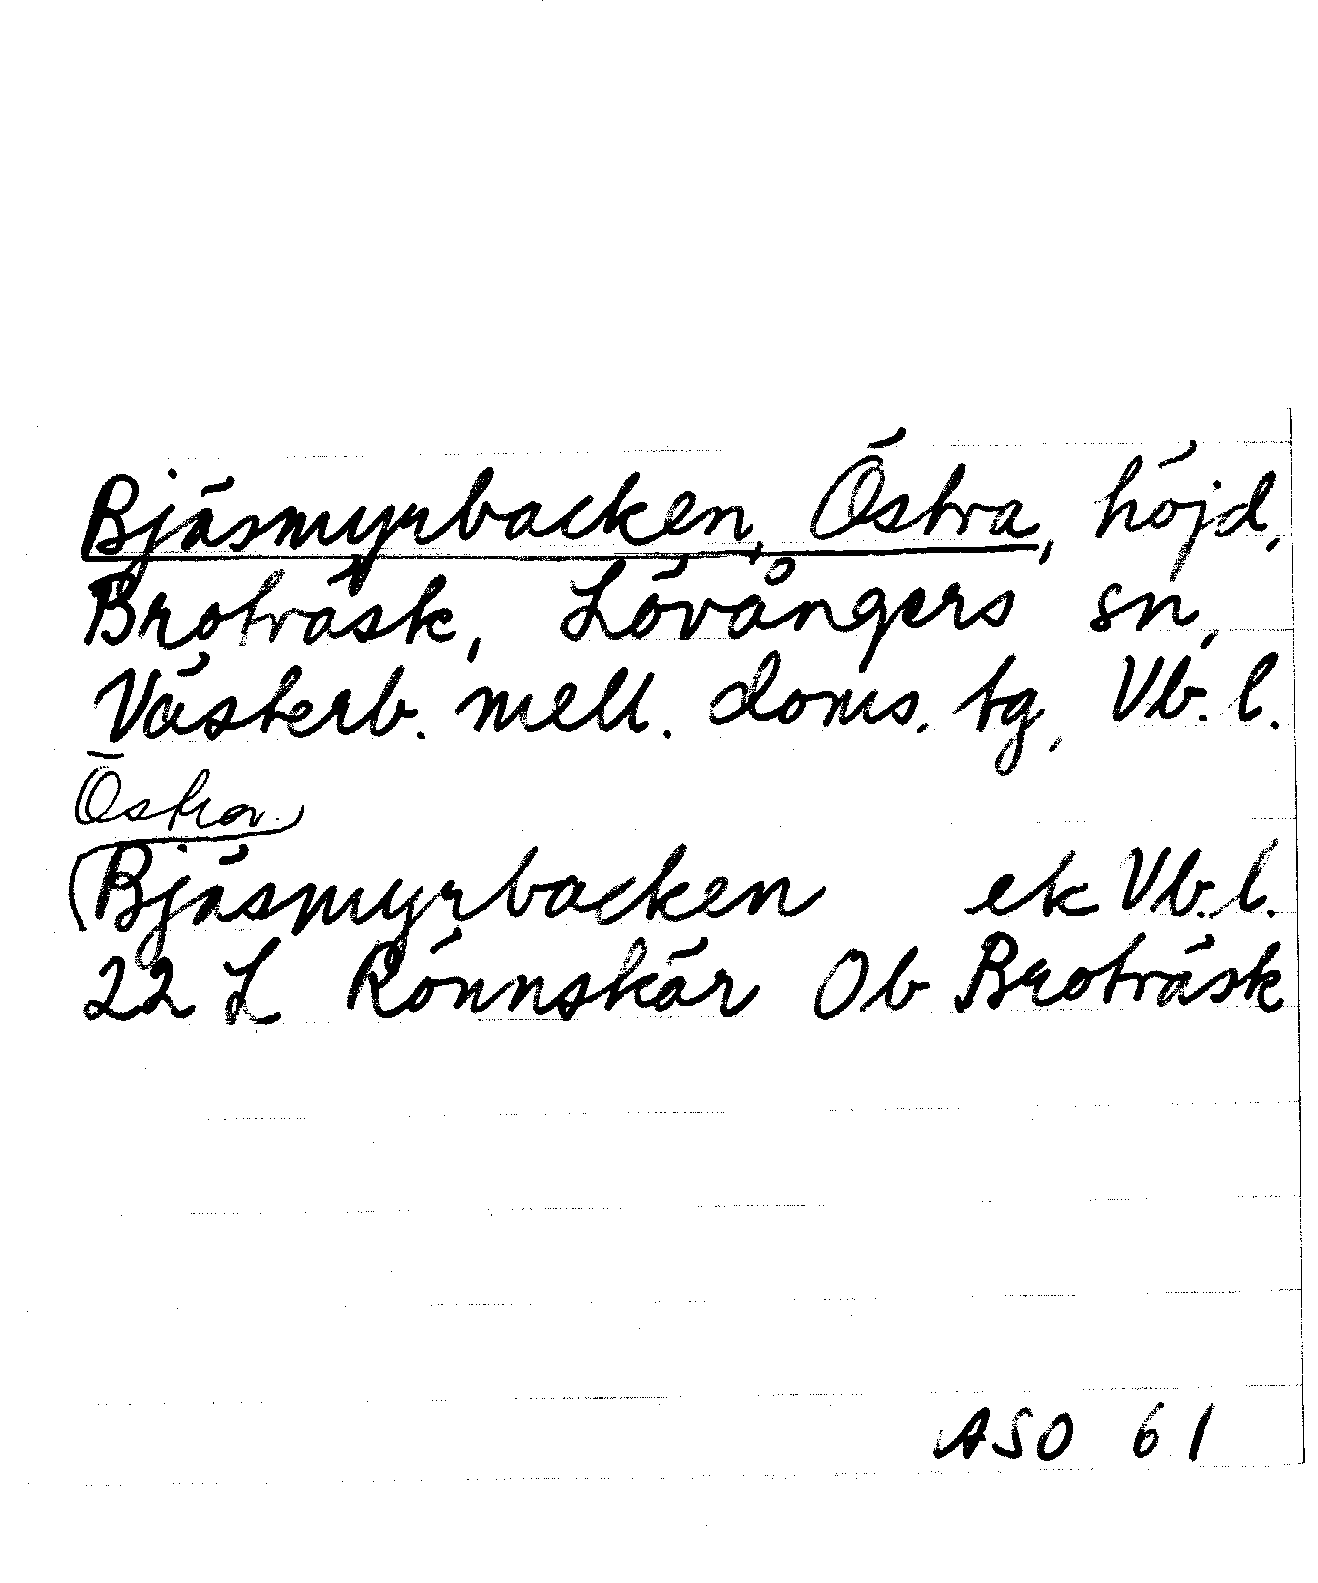 Bjäsmyrbacken, Östra, höjd,
Broträsk, Lövångers sn,
Västerb. mell. doms. tg, Vb. l.
Östra
Bjäsmyrbacken ek Vb. l.
22 L Rönnskär Ob Broträsk
ASO 61